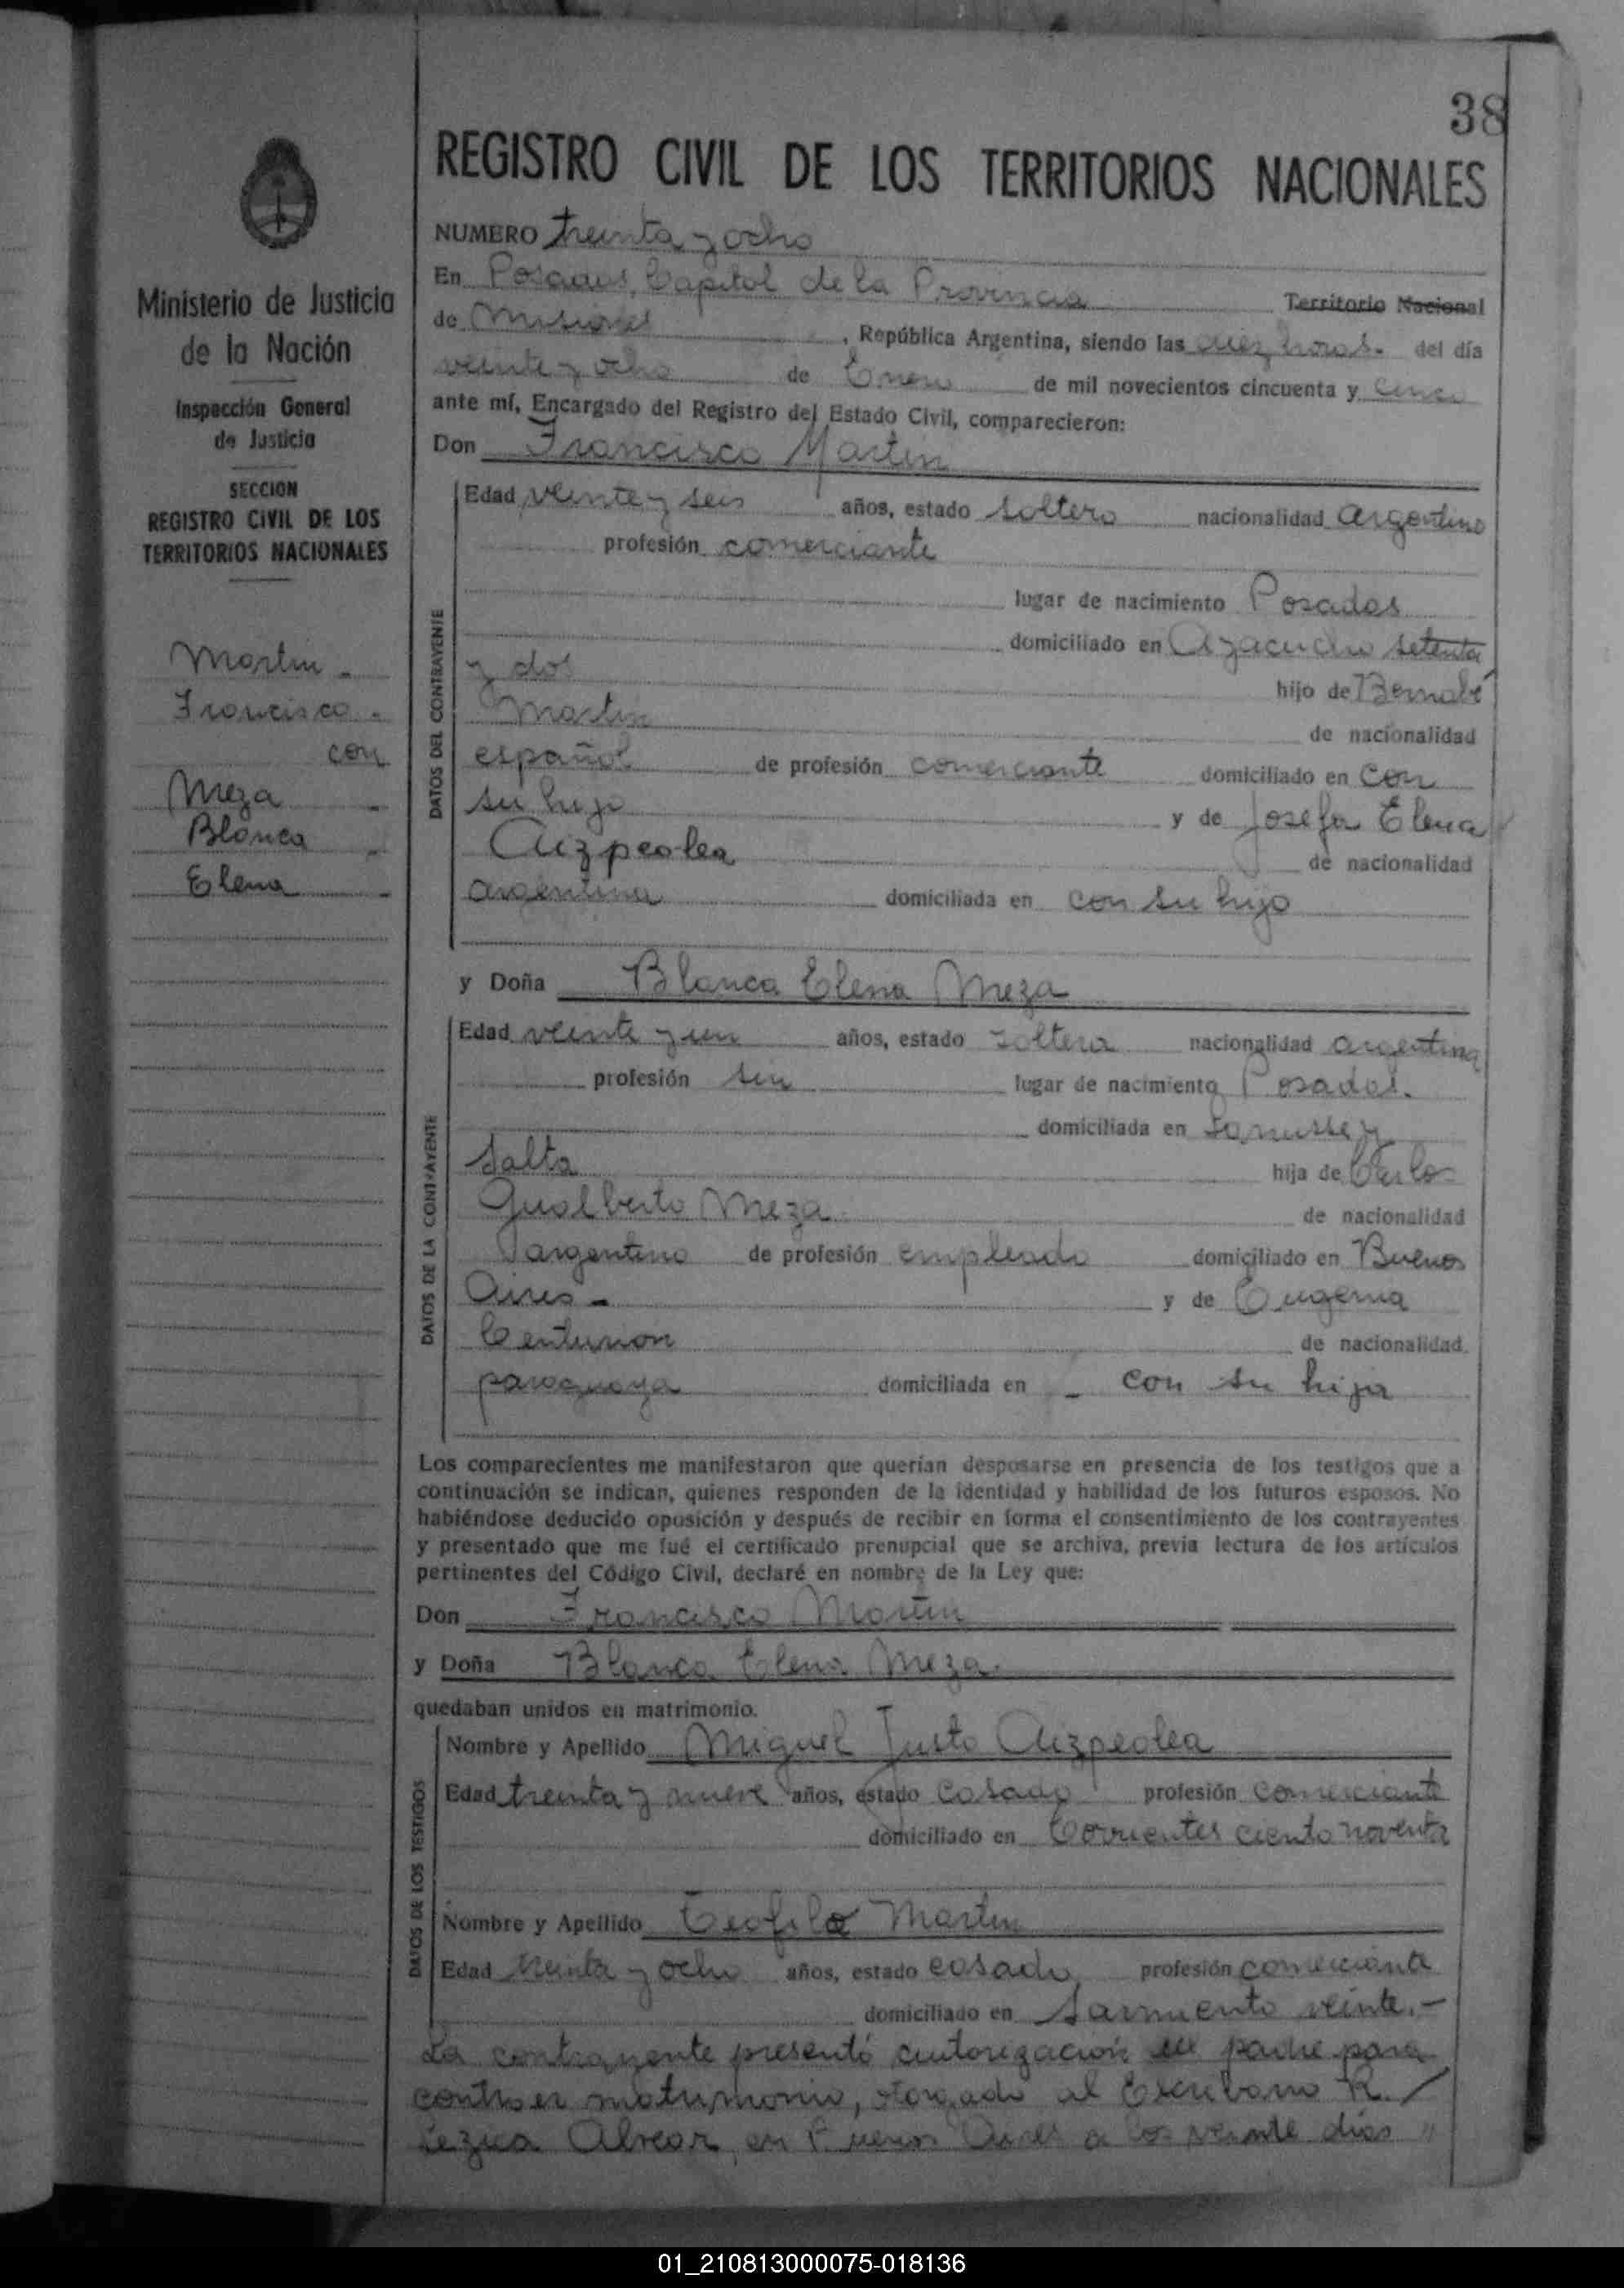 38
REGISTRO CIVIL DE LOS TERRITORIOS NACIONALES
Ministerio de Justicia
de la Nación
Inspección General
de Justicia
SECCION
REGISTRO CIVIL DE LOS
TERRITORIOS NACIONALES
Martin -
Francisco -
con
Meza -
Blanca -
Elena -
NUMERO treinta y ocho
En Posadas, Capital de la Provincia Territorio Nacional
de Misiones, República Argentina, siendo las diez horas. del día
veinte y ocho de Enero de mil novecientos cincuenta y cinco
ante mí, Encargado del Registro del Estado Civil, comparecieron:
Don Francisco Martin
DATOS DEL CONTRAYENTE
Edad veinte y seis años, estado soltero nacionalidad argentino
profesión comerciante
lugar de nacimiento Posadas
domiciliado en Ayacucho setenta
y dos hijo de Bernabé
Martin de nacionalidad
español de profesión comerciante domiciliado en con
su hijo y de Josefa Elena
Aizpeolea de nacionalidad
argentina domiciliada en con su hijo
y Doña Blanca Elena Meza
DATOS DE LA CONTRAYENTE
Edad veinte y un años, estado soltera nacionalidad argentina
profesión sin lugar de nacimiento Posadas.
domiciliada en Lanusse y
Salta hija de Carlos
Gualberto Meza de nacionalidad
argentino de profesión empleado domiciliado en Buenos
Aires - y de Eugenia
Centurion de nacionalidad
paraguaya domiciliada en - con su hija
Los comparecientes me manifestaron que querían desposarse en presencia de los testigos que a
continuación se indican, quienes responden de la identidad y habilidad de los futuros esposos. No
habiéndose deducido oposición y después de recibir en forma el consentimiento de los contrayentes
y presentado que me fué el certificado prenupcial que se archiva, previa lectura de los artículos
pertinentes del Código Civil, declaré en nombre de la Ley que:
Don Francisco Martin
y Doña Blanca Elena Meza.
quedaban unidos en matrimonio.
DATOS DE LOS TESTIGOS
Nombre y Apellido Miguel Justo Aizpeolea
Edad treinta y nueve años, estado casado profesión comerciante
domiciliado en Corrientes ciento noventa
Nombre y Apellido Teofilo Martin
Edad treinta y ocho años, estado casado profesión comerciante
domiciliado en Sarmiento veinte.-
La contrayente presentó autorización padre para
contraer matrimonio, otorgado al Escribano R. /
Lezica Alvear, en Buenos Aires a los veinte dias "
01_210813000075-018136